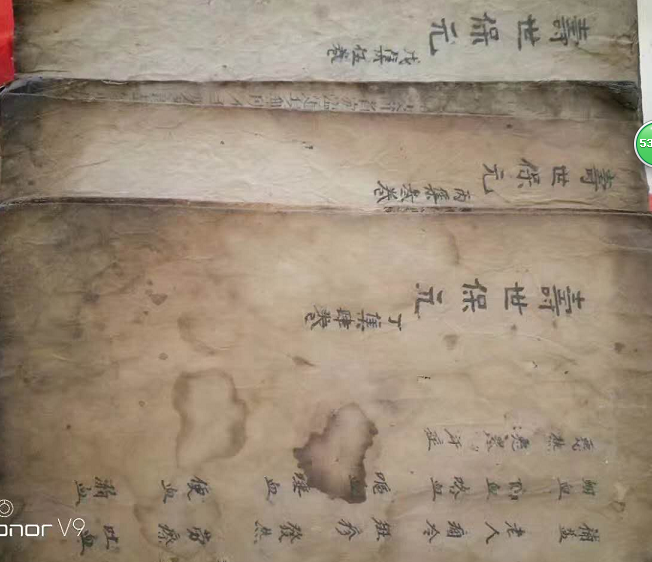 壽世保元
戊集伍卷
壽世保元
丙集叁卷
壽世保元
丁集肆卷
惡熱 惡寒 汗症
衄血 血 咯血 血 便血 溺血
補益 老人 痼冷 斑疹 發熱 勞瘵 吐血
onor V9
53